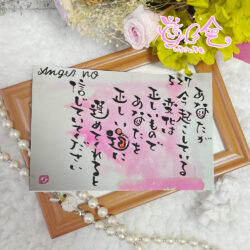 Angel NO
あなたが
今起こしている
変化は
正しいもので
あなたを
正しい道に
進めてくれると
信じていてください